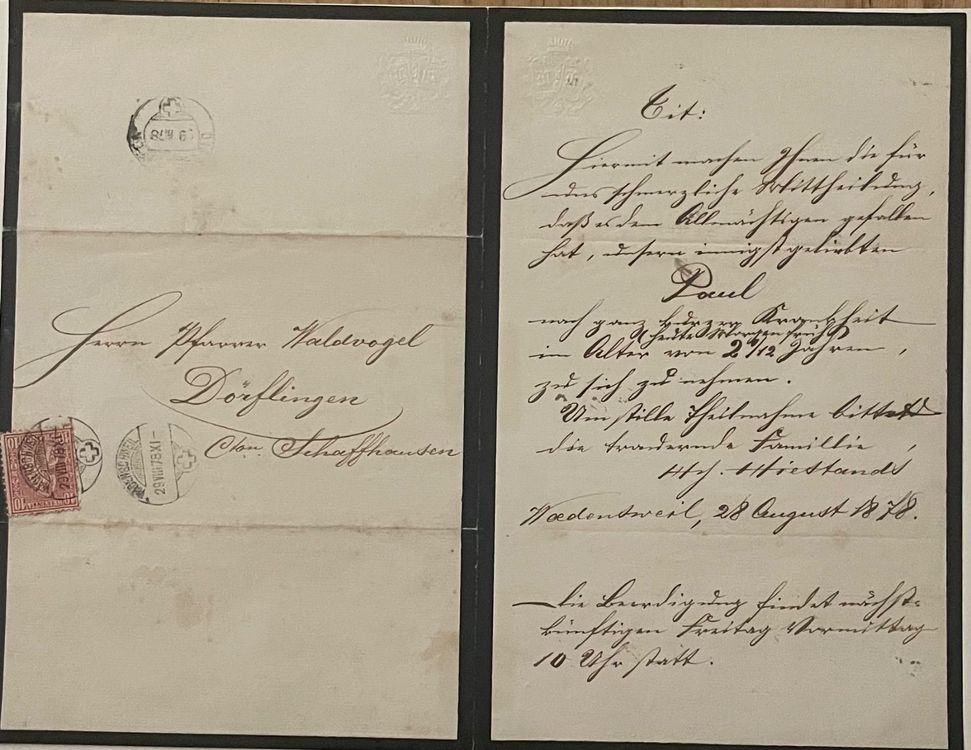 Herrn Pfarrer Waldvogel
Dörflingen
Cton. Schaffhausen
WÄDENSCHWEIL
29 VIII 78 XI-
10 10
Tit:
Hiermit machen Ihnen die für
uns schmerzliche Mittheilung,
daß es dem Allmächtigen gefallen
hat, unsern innigst geliebten
Paul
nach ganz kurzer Krankheit
heute Morgen früh
im Alter von 2 /12 Jahren,
zu sich zu nehmen.
Um stille Theilnahme bittet
die trauernde Familie,
Hch. Hiestands
Wædensweil, 28 August 1878.
Die Beerdigung findet nächst-
künftigen Freitag Vormittag
10 Uhr statt.